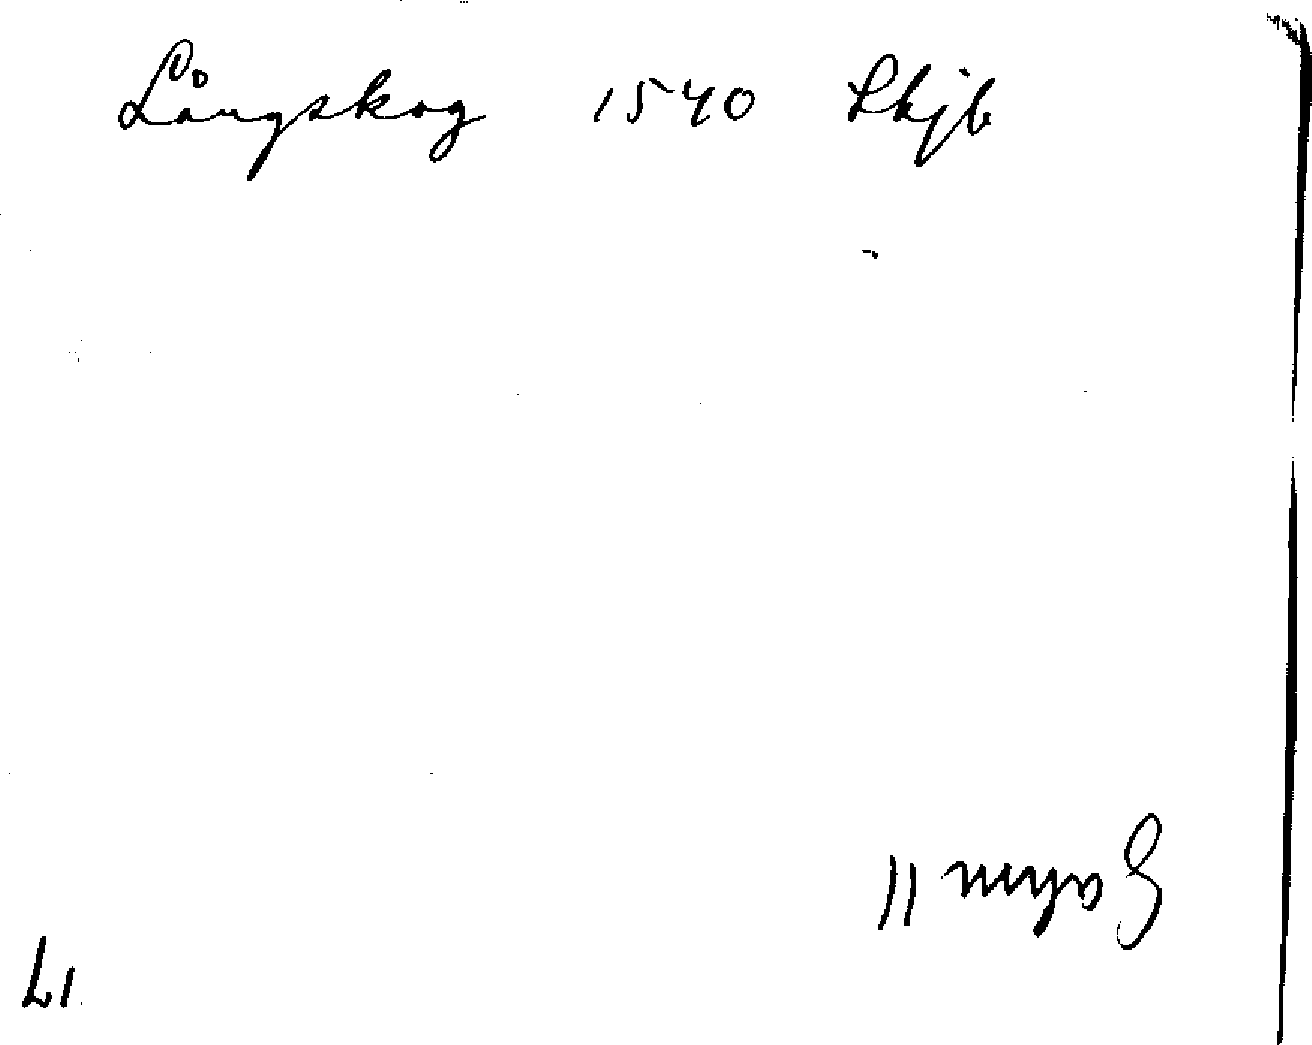 Långskog 1540 Lkjb
Gahm II
17